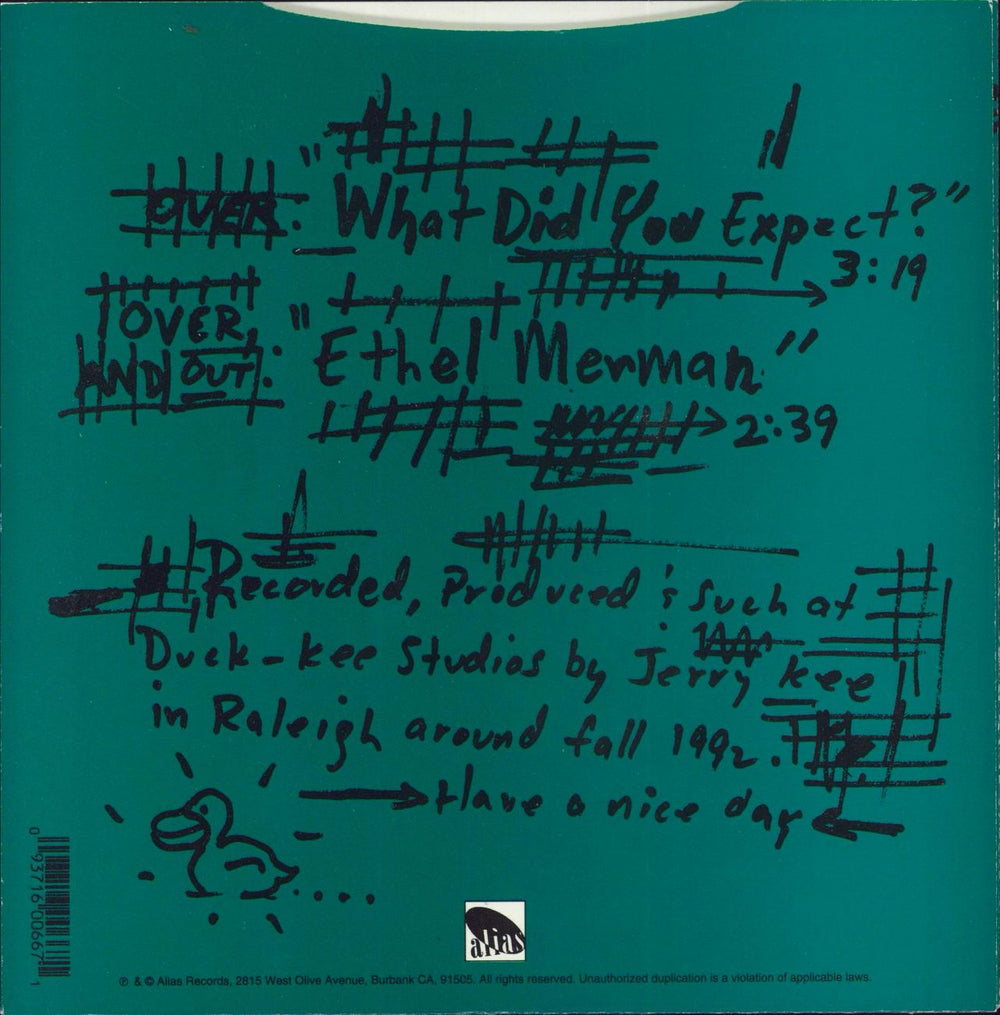 OVER: "What Did You Expect?"
3:19
OVER, "Ethel Merman"
AND OUT:
2:39
Recorded, Produced & Such at
Duck-kee Studios by Jerry kee
in Raleigh around fall 1992.
Have a nice day
0 93716 00667 1
alias
℗ & © Alias Records, 2815 West Olive Avenue, Burbank CA, 91505. All rights reserved. Unauthorized duplication is a violation of applicable laws.